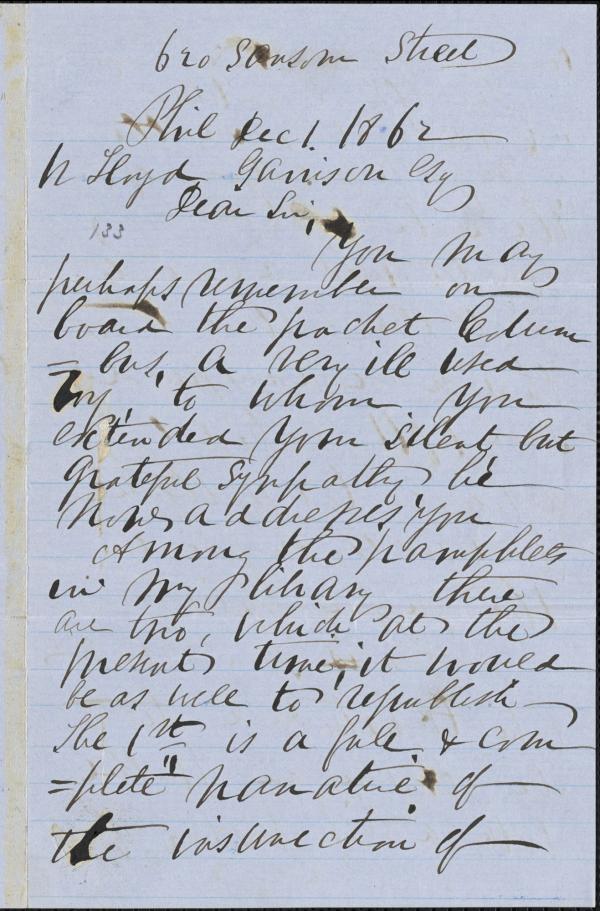 620 Sansom Street
Phil Dec 1. 1862
W Lloyd Garrison Esq
Dear Sir,
133
You may
perhaps remember on
board the packet Colum
=bus, a very ill used
boy, to whom you
extended your silent, but
grateful sympathy he
now addresses you
Among the pamphlets
in my library there
are two, which at the
present time, it would
be as well to republish
The 1st is a full & com
=plete "narrative of
the insurrection of